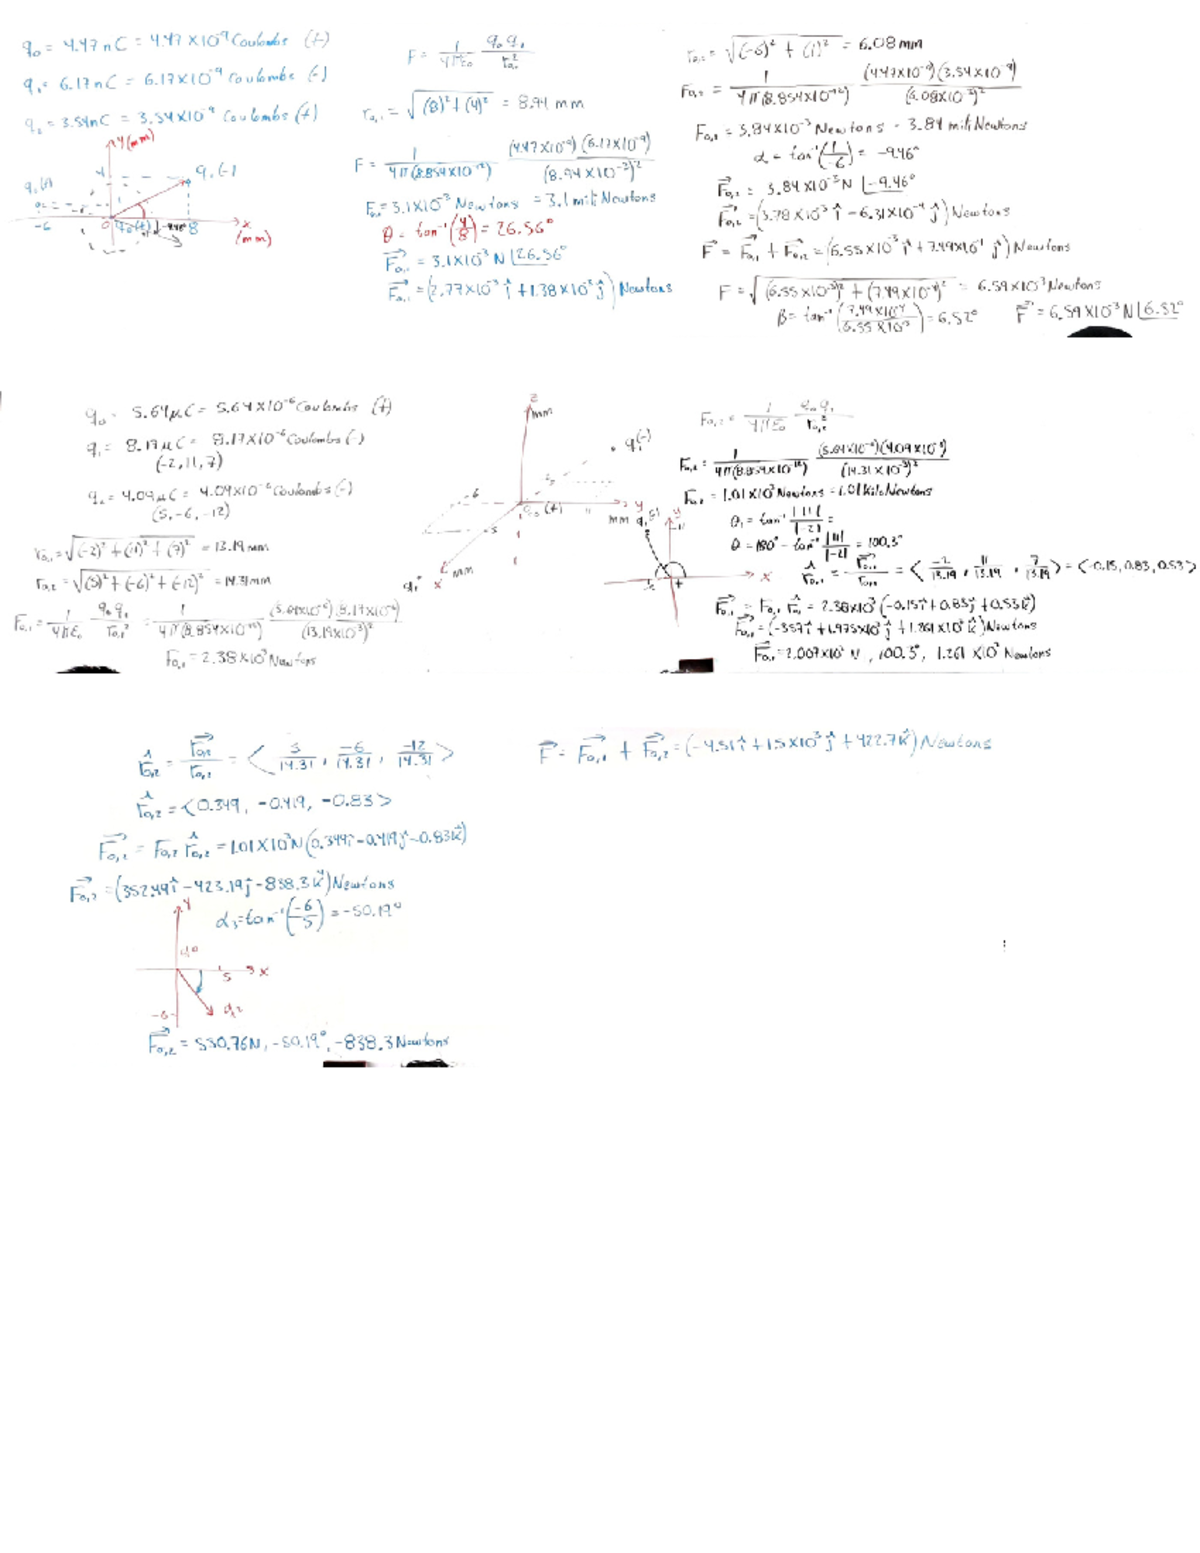 q₀ = 4.47 nC = 4.47 X10⁻⁹ Coulombs (+)
q₁ = 6.17 nC = 6.17X10⁻⁹ Coulombs (-)
q₂ = 3.54nC = 3.54X10⁻⁹ Coulombs (+)
Y(mm)
4
q₁(-)
-6
0
q₀(+)
8
X
(mm)
F = 1/4πε₀ q₀q₁/r₀,₁²
r₀,₁ = √(8)²+(4)² = 8.94 mm
F = 1/4π(8.854X10⁻¹²) (4.47X10⁻⁹)(6.17X10⁻⁹)/(8.94X10⁻³)²
F₀,₁ = 3.1X10⁻³ Newtons = 3.1 mili Newtons
θ = tan⁻¹(4/8) = 26.56°
F₀,₁ = 3.1X10⁻³ N ∠26.56°
F₀,₁ = (2.77X10⁻³ î + 1.38X10⁻³ ĵ) Newtons
r₀,₂ = √(-6)² + (1)² = 6.08 mm
F₀,₂ = 1/4π(8.854X10⁻¹²) (4.47X10⁻⁹)(3.54X10⁻⁹)/(6.08X10⁻³)²
F₀,₂ = 3.84X10⁻³ Newtons = 3.84 mili Newtons
α = tan⁻¹(1/-6) = -9.46°
F₀,₂ = 3.84X10⁻³ N ∠-9.46°
F₀,₂ = (3.78X10⁻³ î - 6.31X10⁻⁴ ĵ) Newtons
F = F₀,₁ + F₀,₂ = (6.55X10⁻³ î + 7.49X10⁻⁴ ĵ) Newtons
F = √(6.55X10⁻³)² + (7.49X10⁻⁴)² = 6.59X10⁻³ Newtons
β = tan⁻¹(7.49X10⁻⁴/6.55X10⁻³) = 6.52°
F = 6.59X10⁻³ N ∠6.52°
q₀ = 5.64μC = 5.64X10⁻⁶ Coulombs (+)
q₁ = 8.17μC = 8.17X10⁻⁶ Coulombs (-)
(-2,11,7)
q₂ = 4.09μC = 4.09X10⁻⁶ Coulombs (-)
(5,-6,-12)
r₀,₁ = √(-2)² + (11)² + (7)² = 13.19 mm
r₀,₂ = √(5)² + (-6)² + (-12)² = 14.31mm
F₀,₁ = 1/4πε₀ q₀q₁/r₀,₁² = 1/4π(8.854X10⁻¹²) (5.64X10⁻⁶)(8.17X10⁻⁶)/(13.19X10⁻³)²
F₀,₁ = 2.38X10³ Newtons
z
mm
q₁(-)
-6
q₀(+)
11
y
mm
5
mm
x
F₀,₂ = 1/4πε₀ q₀q₁/r₀,₂²
F₀,₂ = 1/4π(8.854X10⁻¹²) (5.64X10⁻⁶)(4.09X10⁻⁶)/(14.31X10⁻³)²
F₀,₂ = 1.01X10³ Newtons = 1.01 Kilo Newtons
θ₁ = tan⁻¹ |11|/|-2| =
θ = 180° - tan⁻¹ |11|/|-2| = 100.3°
q₁(-)
y
11
x
r̂₀,₁ = r₀,₁/r₀,₁ = <-2/13.19, 11/13.19, 7/13.19> = <-0.15, 0.83, 0.53>
F₀,₁ = F₀,₁ r̂₀,₁ = 2.38X10³ (-0.15î + 0.83ĵ + 0.53k̂)
F₀,₁ = (-357î + 1.975X10³ĵ + 1.261X10³ k̂) Newtons
F₀,₁ = 2.007X10³ N, 100.3°, 1.261 X10³ Newtons
r̂₀,₂ = r₀,₂/r₀,₂ = <5/14.31, -6/14.31, -12/14.31>
r̂₀,₂ = <0.349, -0.419, -0.83>
F₀,₂ = F₀,₂ r̂₀,₂ = 1.01X10³N (0.349î - 0.419ĵ - 0.83k̂)
F₀,₂ = (352.49î - 423.19ĵ - 838.3k̂) Newtons
α₃ = tan⁻¹(-6/5) = -50.19°
y
q₀
5
x
-6
q₂
F₀,₂ = 550.76N, -50.19°, -838.3 Newtons
F = F₀,₁ + F₀,₂ = (-4.51î + 1.5X10³ĵ + 422.7k̂) Newtons